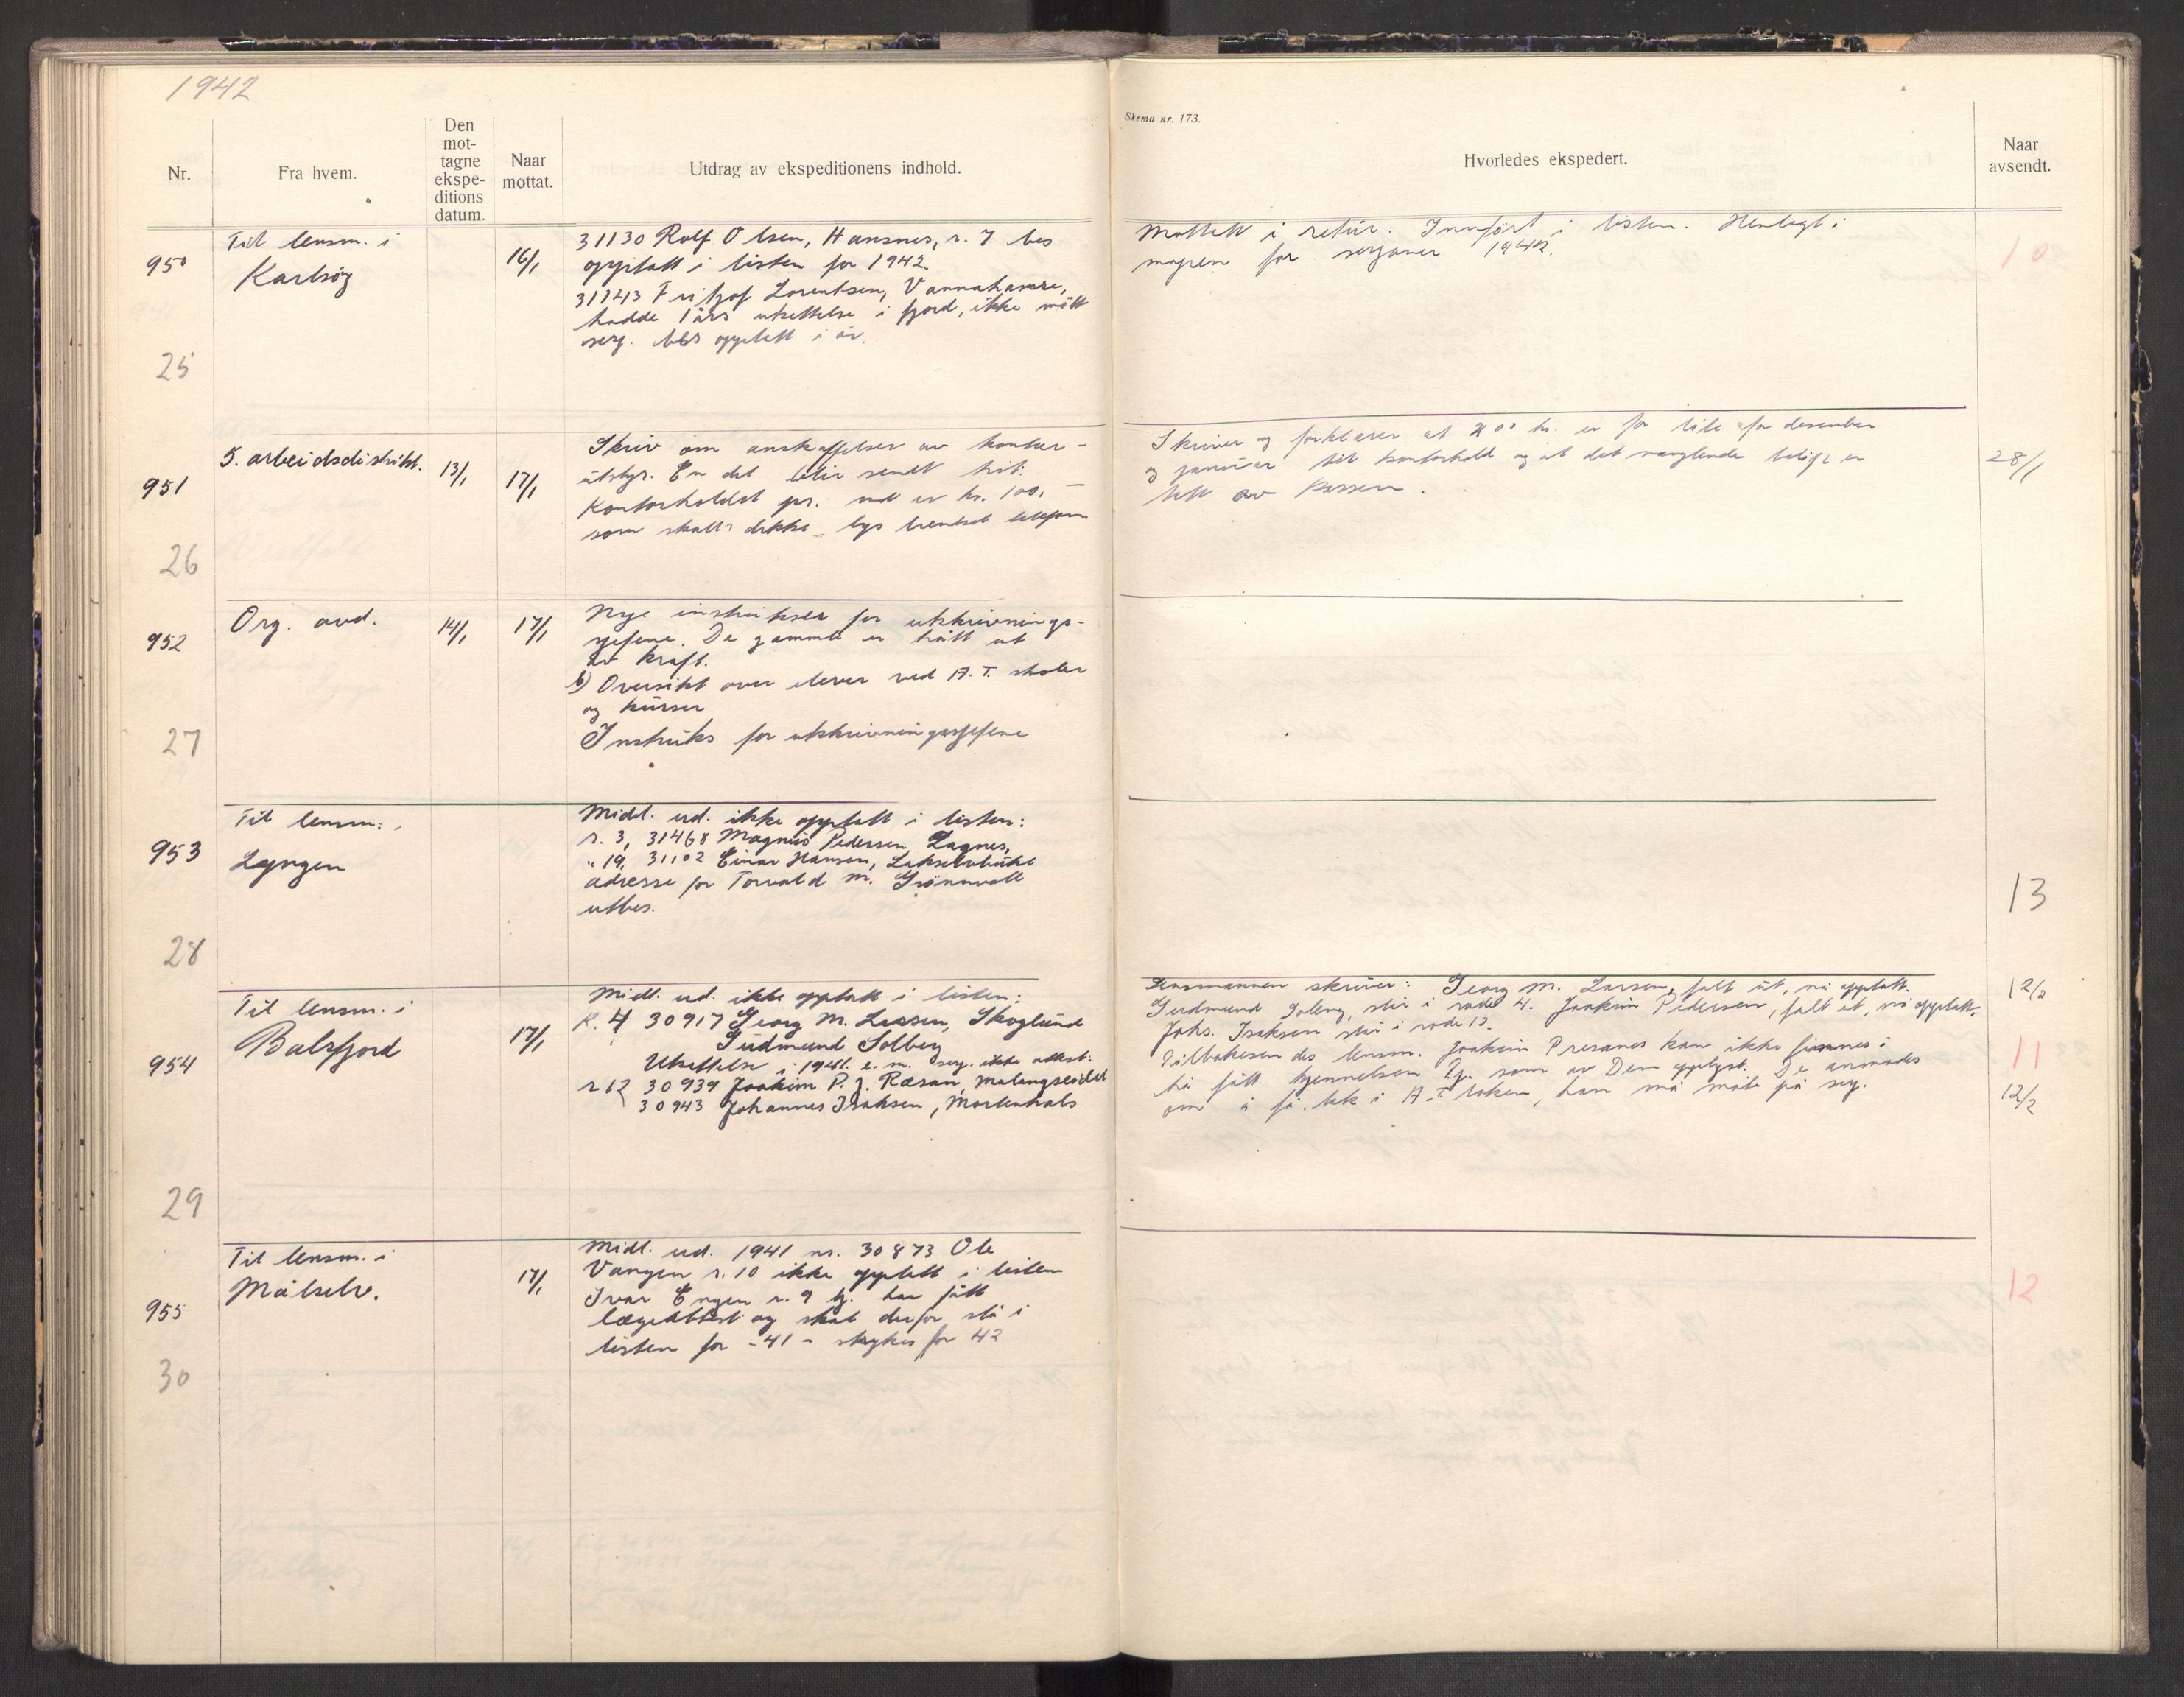 1942
Nr.
Fra hvem.
Den
mot-
tagne
ekspe-
ditions
datum.
Naar
mottat.
Utdrag av ekspeditionens indhold.
Skema nr. 173.
Hvorledes ekspedert.
Naar
avsendt.
950
Til lensm. i
Karlsøy
16/1
31130 Rolf Olsen, Hansnes, r. 7 bes
opptatt i listen for 1942.
31143 Fritjof Lorentsen, Vannahavne,
hadde 1 års utsettelse i fjord, ikke mött
serj. bes opptatt i år.
Mottatt i retur. Innfört i listen. Henlagt i
mappen for serjoner 1942.
10
25
951
5. arbeidsdistrikt.
13/1
17/1
Skriv om anskaffelser av kontor-
utstyr. En del blir sendt hit.
Kontorholdet pr. md er kr. 100,-
som skal dekke lys brensel telefon
Skriver og forklarer at 200 kr. er for lite for desember
og januar til kontorhold og at det manglende belöp er
tatt av kassen.
28/1
26
952
Org. avd.
14/1
17/1
Nye instrukser for utskrivnings-
sjefene. De gamle er trått ut
av kraft.
b) Oversikt over elever ved A.T. skoler
og kurser
Instruks for utskrivningssjefene
27
953
Til lensm. i
Lyngen
Midl. ud. ikke opptatt i listen:
r. 3, 31468 Magnus Pedersen Lagnes,
" 19, 31102 Einar Hansen, Lakselvbukt
adresse for Torvald M. Grönnvoll
utbes.
13
28
954
Til lensm. i
Balsfjord
17/1
Midl. ud. ikke opptatt i listen:
R. 4 30917 Georg M. Larsen, Skoglund
Gudmund Solberg
Utsettelse i 1941 e. m. serj. ikke attest.
r 12 30939 Joakim P. J. Ræsan, Malangseidet
30943 Johannes Isaksen, Mortenhals
Lensmannen skriver: Georg M. Larsen, falt ut, nå opptatt.
Gudmund Solberg, står i rode 4. Joakim Pedersen, falt ut, nå opptatt.
Johs. Isaksen står i rode 12.
Tilbakesendes lensm. Joakim Presanes kan ikke finnes i
ha fått kjennelsen Uj. som av Dem opplyst. De anmodes
om å få tatt i A.T. boken, han må möte på serj.
12/2
11
12/2
29
955
Til lensm. i
Målselv.
17/1
Midl. ud. 1941 nr. 30873 Ole
Vangen r. 10 ikke opptatt i listen
Ivar Engen r. 9 Uj. har fått
lægeattest og skal derfor stå i
listen for -41 - strykes for 42
12
30